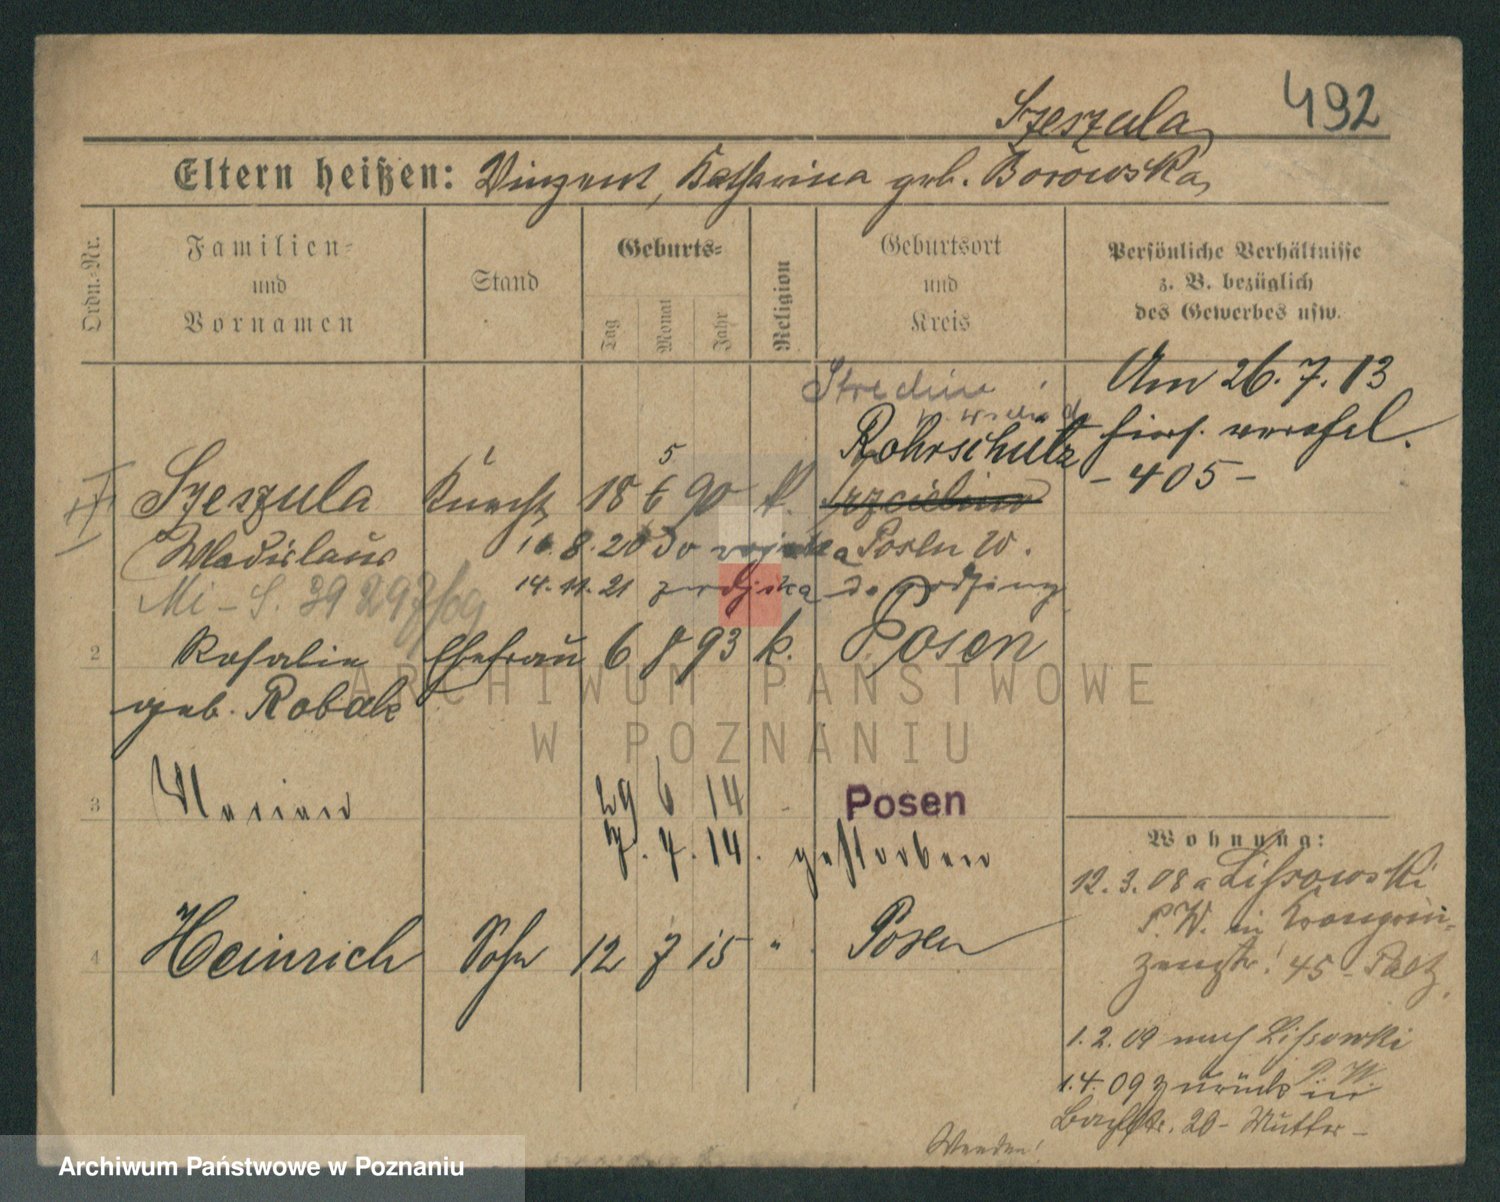 492
Szeszula
Eltern heißen: Vinzent, Katharina geb. Borowska
Ordn.-Nr.
Familien-
und
Vornamen
Stand
Geburts-
Tag
Monat
Jahr
Religion
Geburtsort
und
Kreis
Persönliche Verhältnisse
z. B. bezüglich
des Gewerbes usw.
Am 26.7.13
hier verehel.
-405-
Rohrschütz
5
Szeszula Knecht 18 6 90 k.
Wladislaus 16.8.20 do wojska Posen W.
14.11.21 z wojska do
Mi-S.
2 Rosalie Ehefrau 6 8 93 k. Posen
geb. Robak
ARCHIWUM PAŃSTWOWE
W POZNANIU
3 Marian 29 6 14 - Posen
7.7.14. gestorben
4 Heinrich Sohn 12 7 15 " Posen
Wohnung:
12.3.08 a Lissowski
P.W. in
45
1.2.09 nach Lissowski
P.W.
1.4.09 zurück in
20- Mutter-
Wenden!
Archiwum Państwowe w Poznaniu